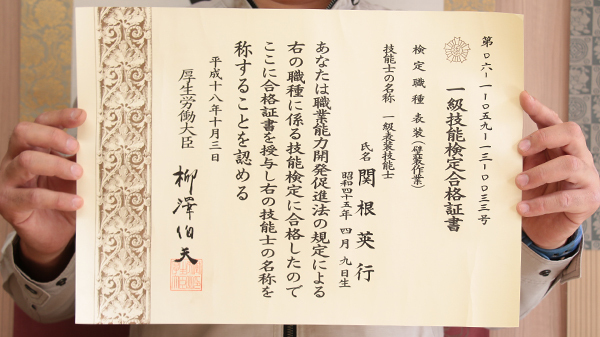 第〇六-一-〇五九-一三-〇〇三三号
一級技能検定合格証書
検定職種 表装(壁装作業)
技能士の名称 一級表装技能士
氏名 関根英行
昭和四十五年四月九日生
あなたは職業能力開発促進法の規定による
右の職種に係る技能検定に合格したので
ここに合格証書を授与し右の技能士の名称を
称することを認める
平成十八年十月三日
厚生労働大臣 柳澤伯夫